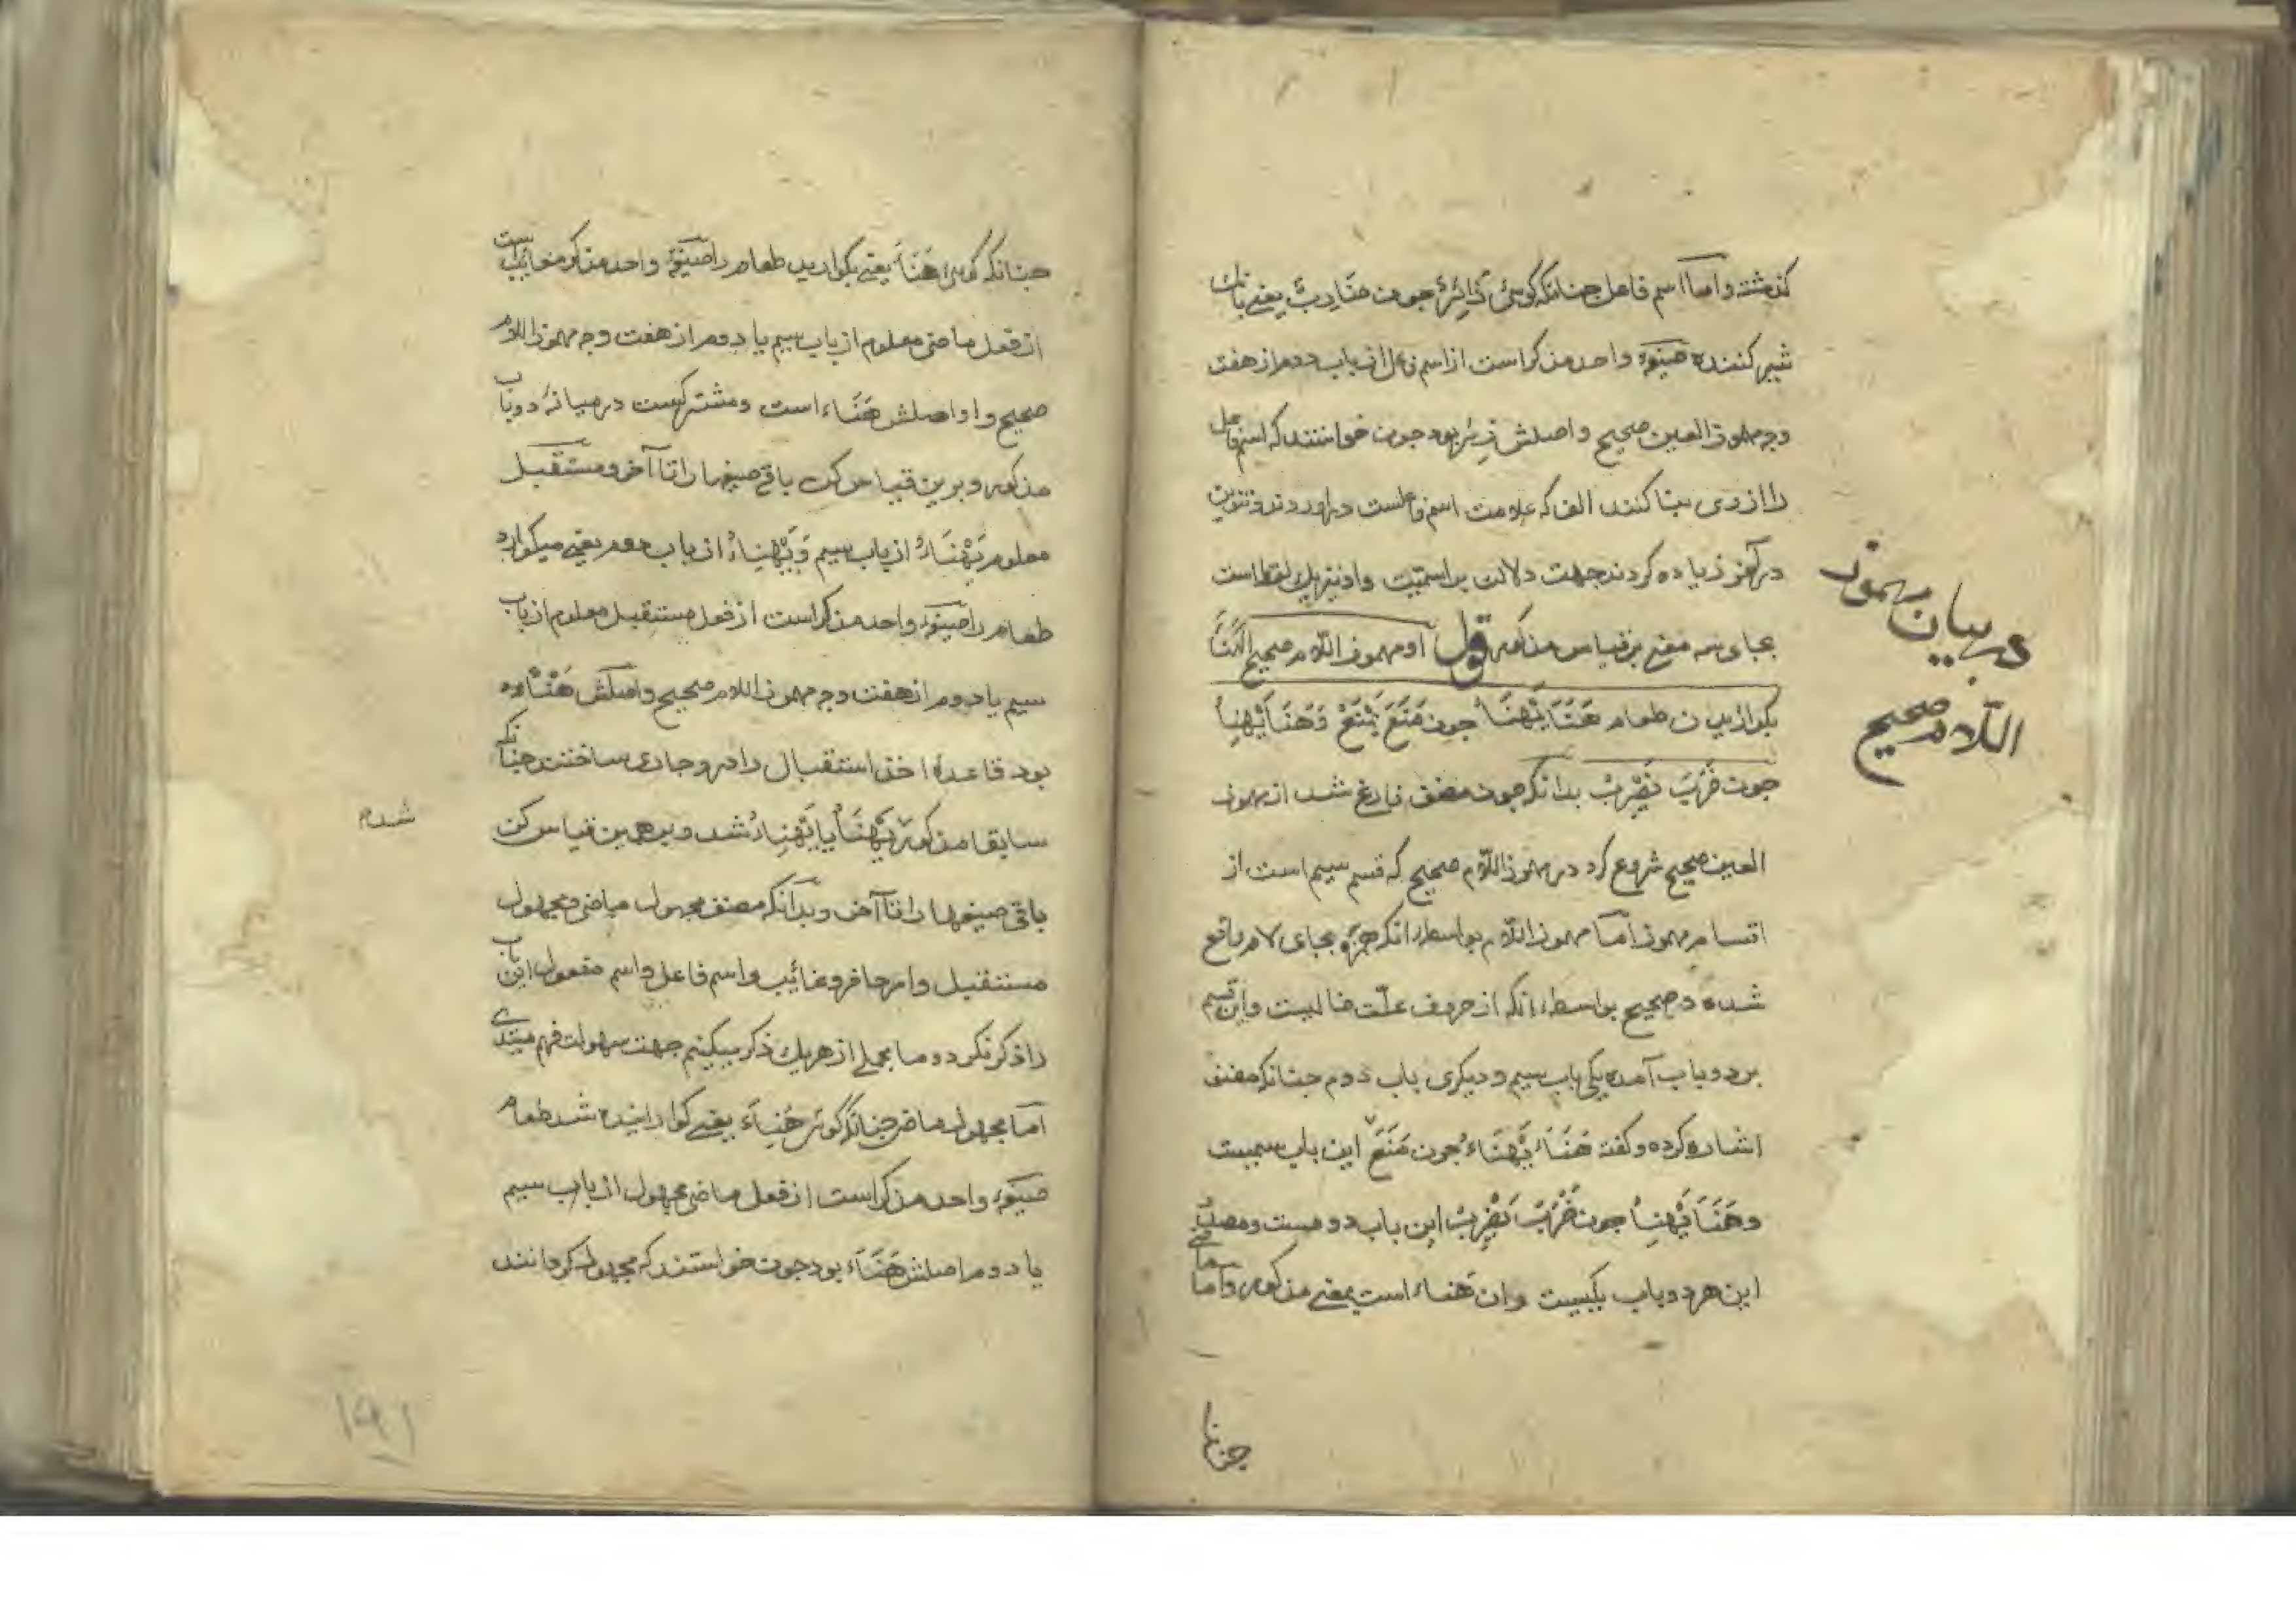 گذشته و اما اسم فاعل چنانکه گوئی زَائِرٌ چون ضَارِبٌ یعنی بانک
شیر کننده صیغهٔ واحد مذکر است از اسم فاعل از باب دوم از هفت
وجه مهموز العین صحیح و اصلش زئر بود چون خواستند که اسم فاعل
را از وی بنا کنند الف که علامت اسم فاعلست در آوردند و تنوین
در آخر زیاده کردند جهت دلالت بر اسمیت و از نیز یک لفظ است
بجای سه معنی بر قیاس مذکور قوله او مهموز اللام صحیح الهَنَأ
بکوازیدن طعام هَنَأَ یَهْنَأُ چون مَنَعَ یَمْنَعُ وَهَنَأَ یَهْنِأُ
چون ضَرَبَ یَضْرِبُ بدانکه چون مصنف فارغ شد از مهموز
العین صحیح شروع کرد در مهموز اللّام صحیح که قسم سیم است از
اقسام مهموز امّا مهموز اللّام بواسطه انکه همزه بجای لام واقع
شده و صحیح بواسطه انکه از حروف علّت خالیست و این قسم
بر دو باب آمده یکی باب سیم و دیکری باب دوم چنانکه مصنف
اشاره کرده و گفته هَنَأَ یَهْنَاءُ چون مَنَعَ این باب سیمست
و هَنَأَ یَهْنِأُ چون ضَرَبَ یَضْرِبُ این باب دومست و مصدر
این هر دو باب یکیست و ان هَناء است بمعنی مذکور و امّا ماضی
چنانکه
در بیان مهموز
اللّام صحیح
چنانکه گوئی هَنَأَ یعنی بکوارید طعام را صیغهٔ واحد مذکر مخایب است
از فعل ماضی معلوم از باب سیم یا دوم از هفت وجه مهموز اللام
صحیح و او اصلش هَنَاء است و مشترکست در میانهٔ دو باب
مذکور و برین قیاس کن باقی صیغها را تا آخر و مستقبل
معلوم یَهْنَأُ از باب سیم وَ یَهْنِأُ از باب دوم یعنی میکوارد
طعام را صیغهٔ واحد مذکر است از فعل مستقبل معلوم از باب
سیم یا دوم از هفت وجه مهموز اللام صحیح و اصلش هَنْأ
بود قاعدهٔ اخذ استقبال را در و جاری ساختند چنانکه
سابقا مذکور یَهْنَأُ یا یَهْنِأُ شد و بر همین قیاس کن
شدم
باقی صیغها را تا آخر و بدانکه مصنف مجهول ماضی و مجهول
مستقبل و امر حاضر و غائب و اسم فاعل و اسم مفعول این باب
را ذکر نکرد و ما مجملی از هر یک ذکر میکنیم جهت سهولت فهم مبتدی
امّا مجهول ماضی چنانکه گوئی هُنِأَ یعنی کوارانیده شد طعام
صیغهٔ واحد مذکر است از فعل ماضی مجهول از باب سیم
یا دوم اصلش هَنَأَ بود چون خواستند که مجهول گردانند
۱۹۱